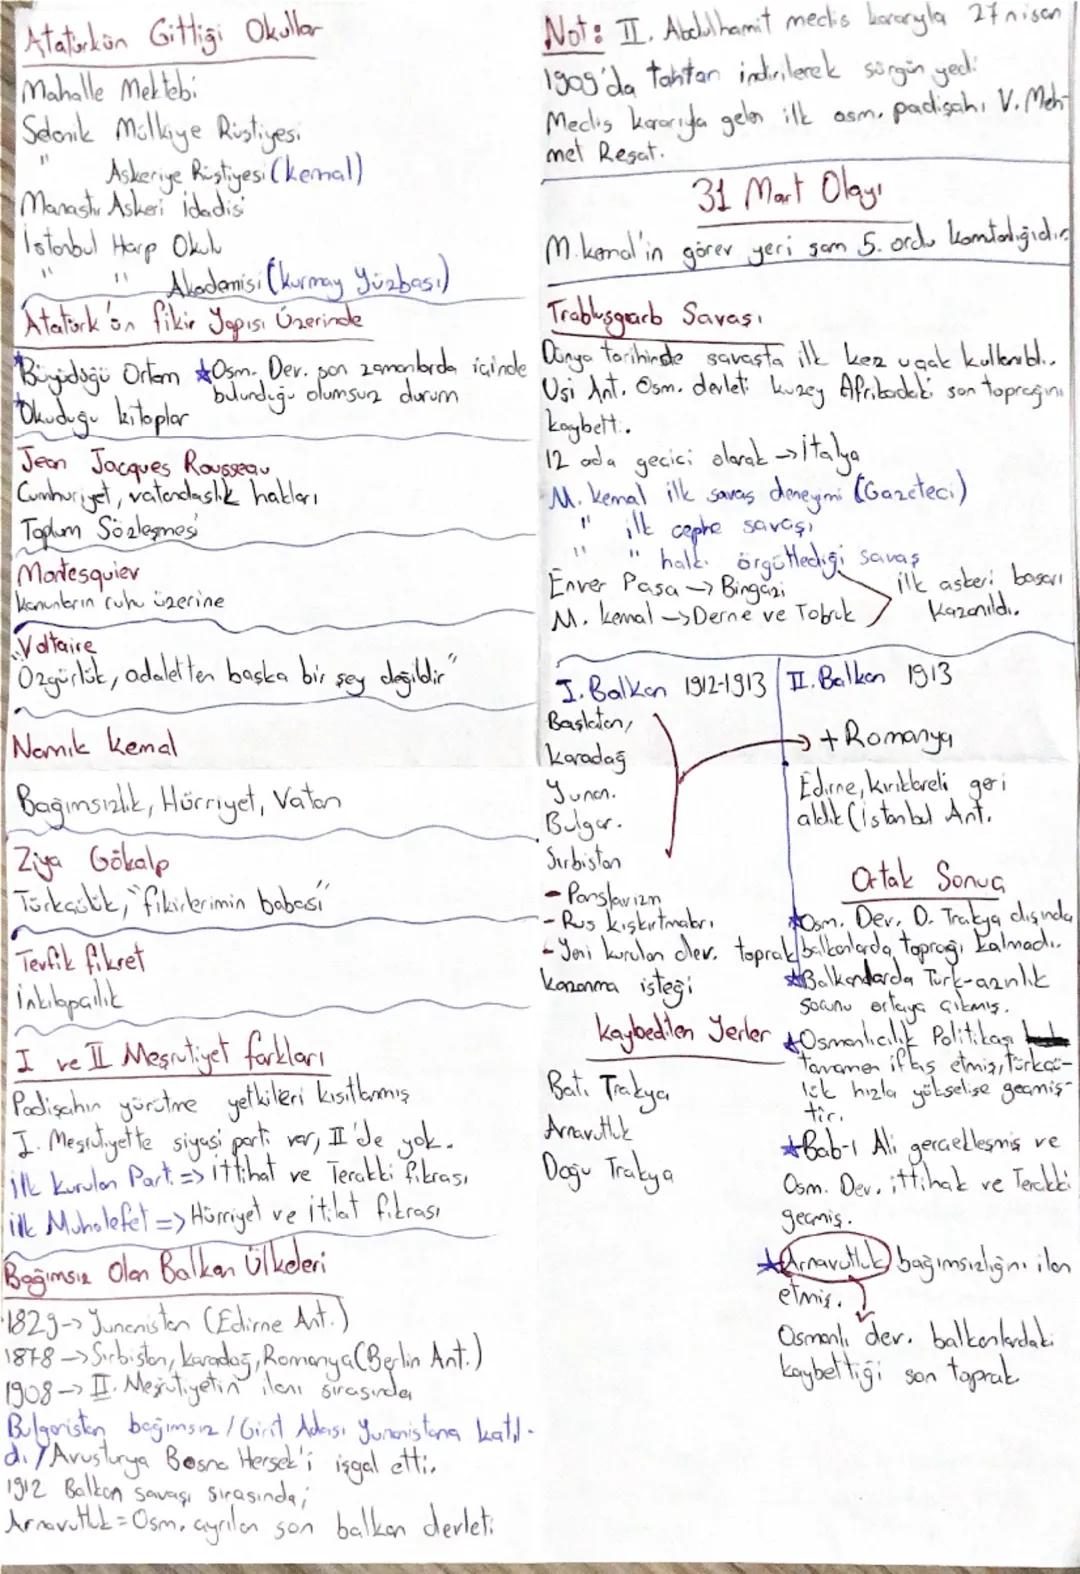 Atatürkün Gittiği Okullar
Mahalle Mektebi
Selanik Mülkiye Rüştiyesi
" Askeriye Rüştiyesi (kemal)
Manastır Askeri idadisi
İstanbul Harp Okulu
" " Akademisi (kurmay yüzbaşı)
Atatürk'ün fikir Yapısı Üzerinde
★Büyüdüğü Ortam ★Osm. Dev. son zamanlarda içinde
bulunduğu olumsuz durum
★Okuduğu kitaplar
Jean Jacques Rousseau
Cumhuriyet, vatandaşlık hakları
Toplum Sözleşmesi
Montesquiev
Kanunların ruhu üzerine
Voltaire
"Özgürlük, adaletten başka bir şey değildir"
Namık Kemal
Bağımsızlık, Hürriyet, Vatan
Ziya Gökalp
Türkçülük, "fikirlerimin babası"
Tevfik fikret
İnkılapçılık
I ve II Meşrutiyet farkları
Padişahın yürütme yetkileri kısıtlanmış
I. Meşrutiyette siyasi parti var, II'de yok.
ilk kurulan Parti => ittihat ve Terakki fıkrası
ilk Muhalefet => Hürriyet ve itilat fıkrası
Bağımsız Olan Balkan Ülkeleri
1829 -> Yunanistan (Edirne Ant.)
1878 -> Sırbistan, karadağ, Romanya (Berlin Ant.)
1908 -> II. Meşrutiyetin ilanı sırasında
Bulgaristan bağımsız / Girit Adası Yunanistana katıl-
dı / Avusturya Bosna Hersek'i işgal etti.
1912 Balkan savaşı sırasında;
Arnavutluk = Osm. ayrılan son balkan devleti
Not: II. Abdulhamit meclis kararıyla 27 nisan
1909'da tahtan indirilerek sürgün yedi
Meclis kararıyla gelen ilk osm. padişahı V. Meh-
met Reşat.
31 Mart Olayı
M.kemal'in görev yeri şam 5. ordu komtanlığıdır.
Trablusgarb Savaşı
Dünya tarihinde savaşta ilk kez uçak kullanıldı.
Uşi Ant. Osm. devleti kuzey Afrikadaki son toprağını
kaybetti.
12 ada geçici olarak -> italya
M. kemal ilk savaş deneyimi (Gazeteci)
" ilk cephe savaşı
" " halkı örgütlediği savaş
Enver Paşa -> Bingazi
M. kemal -> Derne ve Tobruk
ilk askeri başarı
kazanıldı.
I. Balkan 1912-1913
Başlatan,
Karadağ
Yunan.
Bulgar.
Sırbistan
- Panslavizm
- Rus kışkırtmaları
- Yeni kurulan dev. toprak
kazanma isteği
Kaybedilen Yerler
Batı Trakya
Arnavutluk
Doğu Trakya
II. Balkan 1913
+ Romanya
Edirne, kırıklareli geri
aldık (istanbul Ant.
Ortak Sonuç
★Osm. Dev. D. Trakya dışında
balkanlarda toprağı kalmadı.
★Balkanlarda Türk-azınlık
sorunu ortaya çıkmış.
★Osmanlıcılık Politikası
tamamen iflas etmiş, türkçü-
lük hızla yükselişe geçmiş-
tir.
★Bab-ı Ali gerçekleşmiş ve
Osm. Dev. ittihak ve Terakki
geçmiş.
★Arnavutluk bağımsızlığını ilan
etmiş.
Osmanlı dev. balkanlardaki
kaybettiği son toprak